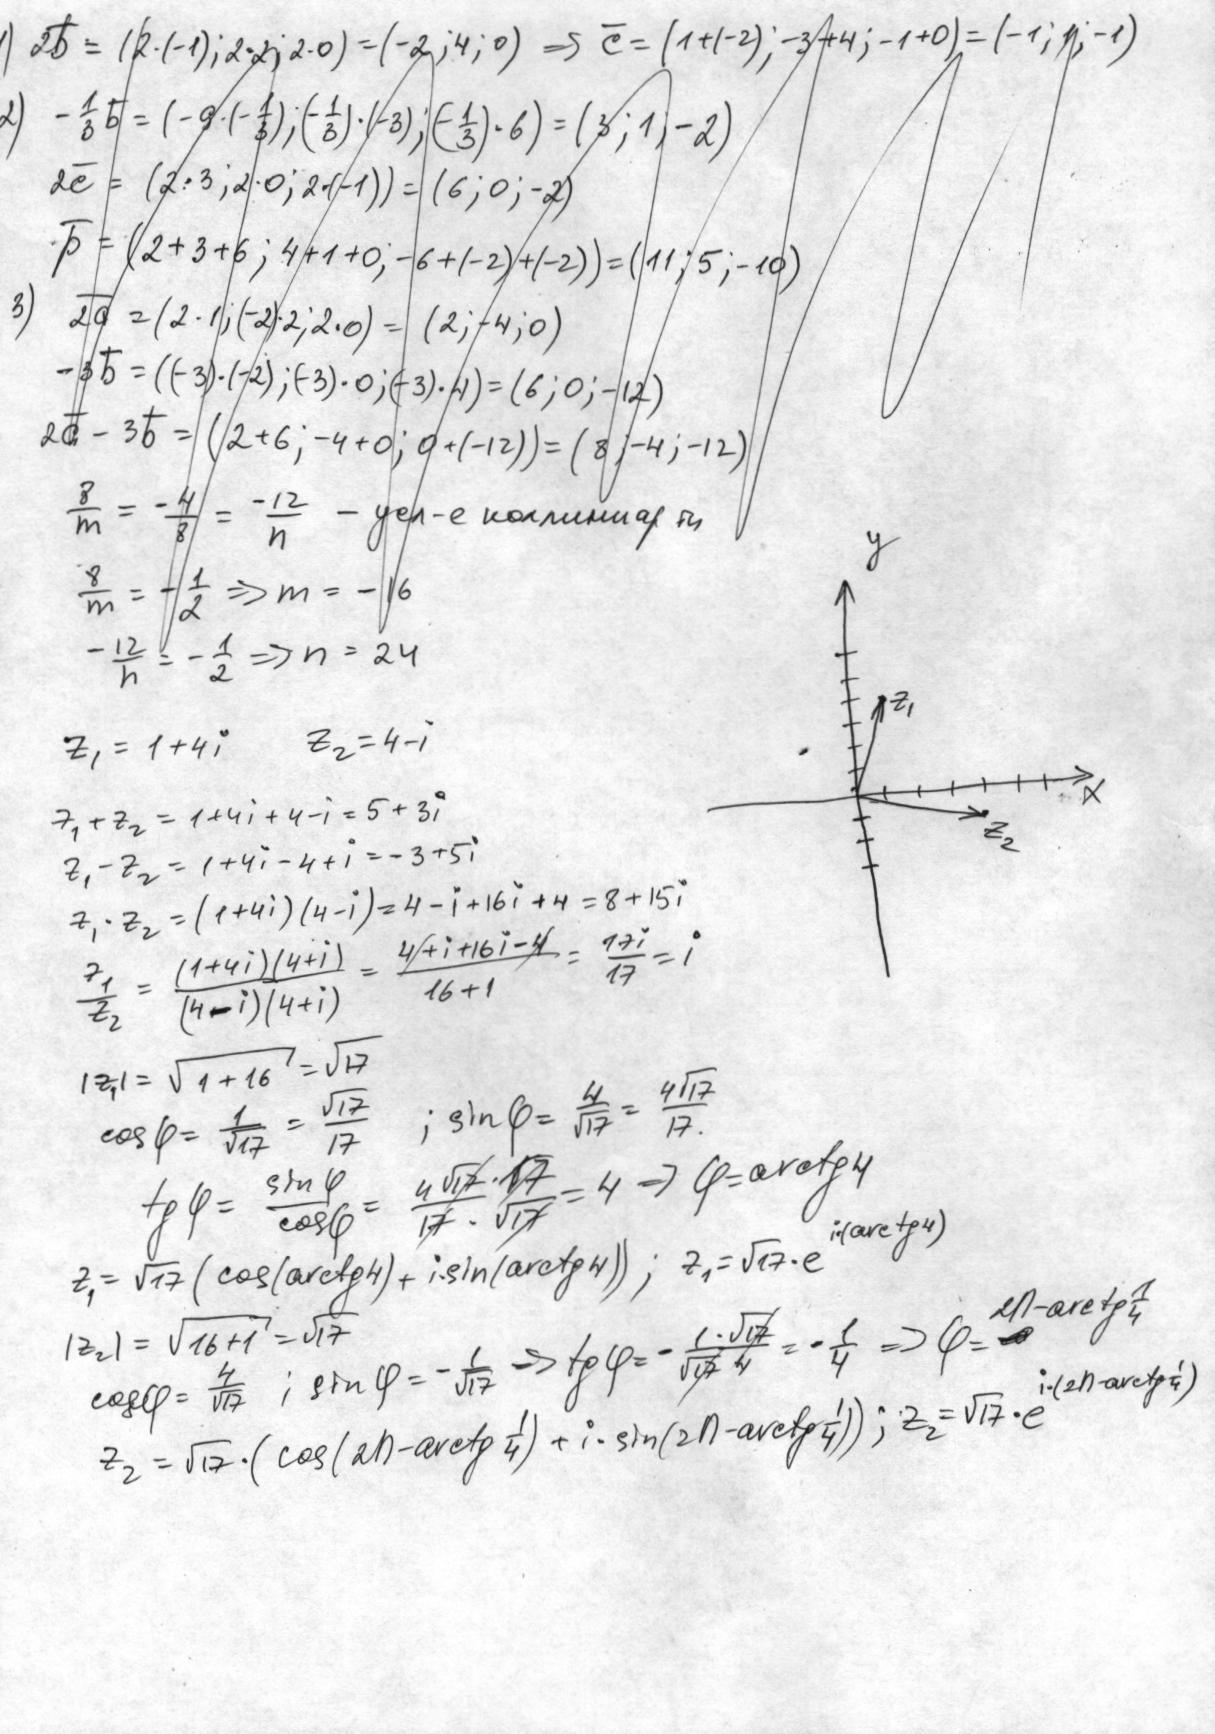 1) 2b̅ = (2·(-1); 2·2; 2·0) = (-2; 4; 0) ⇒ c̅ = (1+(-2); -3+4; -1+0) = (-1; 1; -1)
2) -1/3 b̅ = (-9·(-1/3); (-1/3)·(-3); (-1/3)·6) = (3; 1; -2)
2c̅ = (2·3; 2·0; 2·(-1)) = (6; 0; -2)
p̅ = (2+3+6; 4+1+0; -6+(-2)+(-2)) = (11; 5; -10)
3) 2a̅ = (2·1; (-2)·2; 2·0) = (2; -4; 0)
-3b̅ = ((-3)·(-2); (-3)·0; (-3)·4) = (6; 0; -12)
2a̅ - 3b̅ = (2+6; -4+0; 0+(-12)) = (8; -4; -12)
8/m = -4/8 = -12/n - усл-е коллиниар ти
8/m = -1/2 ⇒ m = -16
-12/n = -1/2 ⇒ n = 24
y
z₁
x
z₂
z₁ = 1+4i z₂ = 4-i
z₁+z₂ = 1+4i+4-i = 5+3i
z₁-z₂ = 1+4i-4+i = -3+5i
z₁·z₂ = (1+4i)(4-i) = 4-i+16i+4 = 8+15i
z₁/z₂ = (1+4i)(4+i)/(4-i)(4+i) = 4+i+16i-4/16+1 = 17i/17 = i
|z₁| = √(1+16) = √17
cosφ = 1/√17 = √17/17 ; sinφ = 4/√17 = 4√17/17.
tgφ = sinφ/cosφ = 4√17·17/17·√17 = 4 ⇒ φ = arctg4
z₁ = √17 (cos(arctg4) + i·sin(arctg4)) ; z₁ = √17·e^(i·(arctg4))
|z₂| = √(16+1) = √17
cosφ = 4/√17 ; sinφ = -1/√17 ⇒ tgφ = -1·√17/√17·4 = -1/4 ⇒ φ = 2π-arctg1/4
z₂ = √17·(cos(2π-arctg 1/4) + i·sin(2π-arctg1/4)) ; z₂ = √17·e^(i·(2π-arctg1/4))